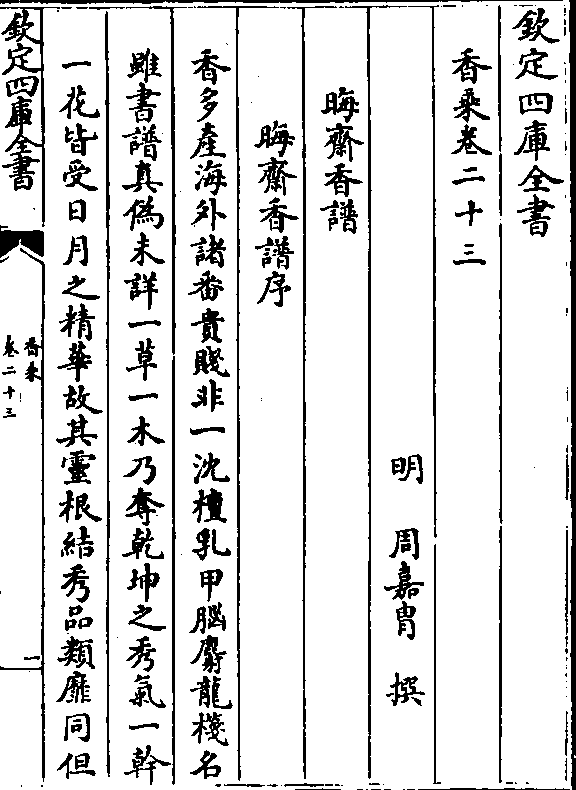 欽定四庫全書
香乘卷二十三
明 周嘉胄 撰
晦齋香譜
晦齋香譜序
香多產海外諸番貴賤非一沈檀乳甲腦麝龍棧名
雖書譜真偽未詳一草一木乃奪乾坤之秀氣一幹
一花皆受日月之精華故其靈根結秀品類靡同但
欽定四庫全書
香乘
卷二十三
一